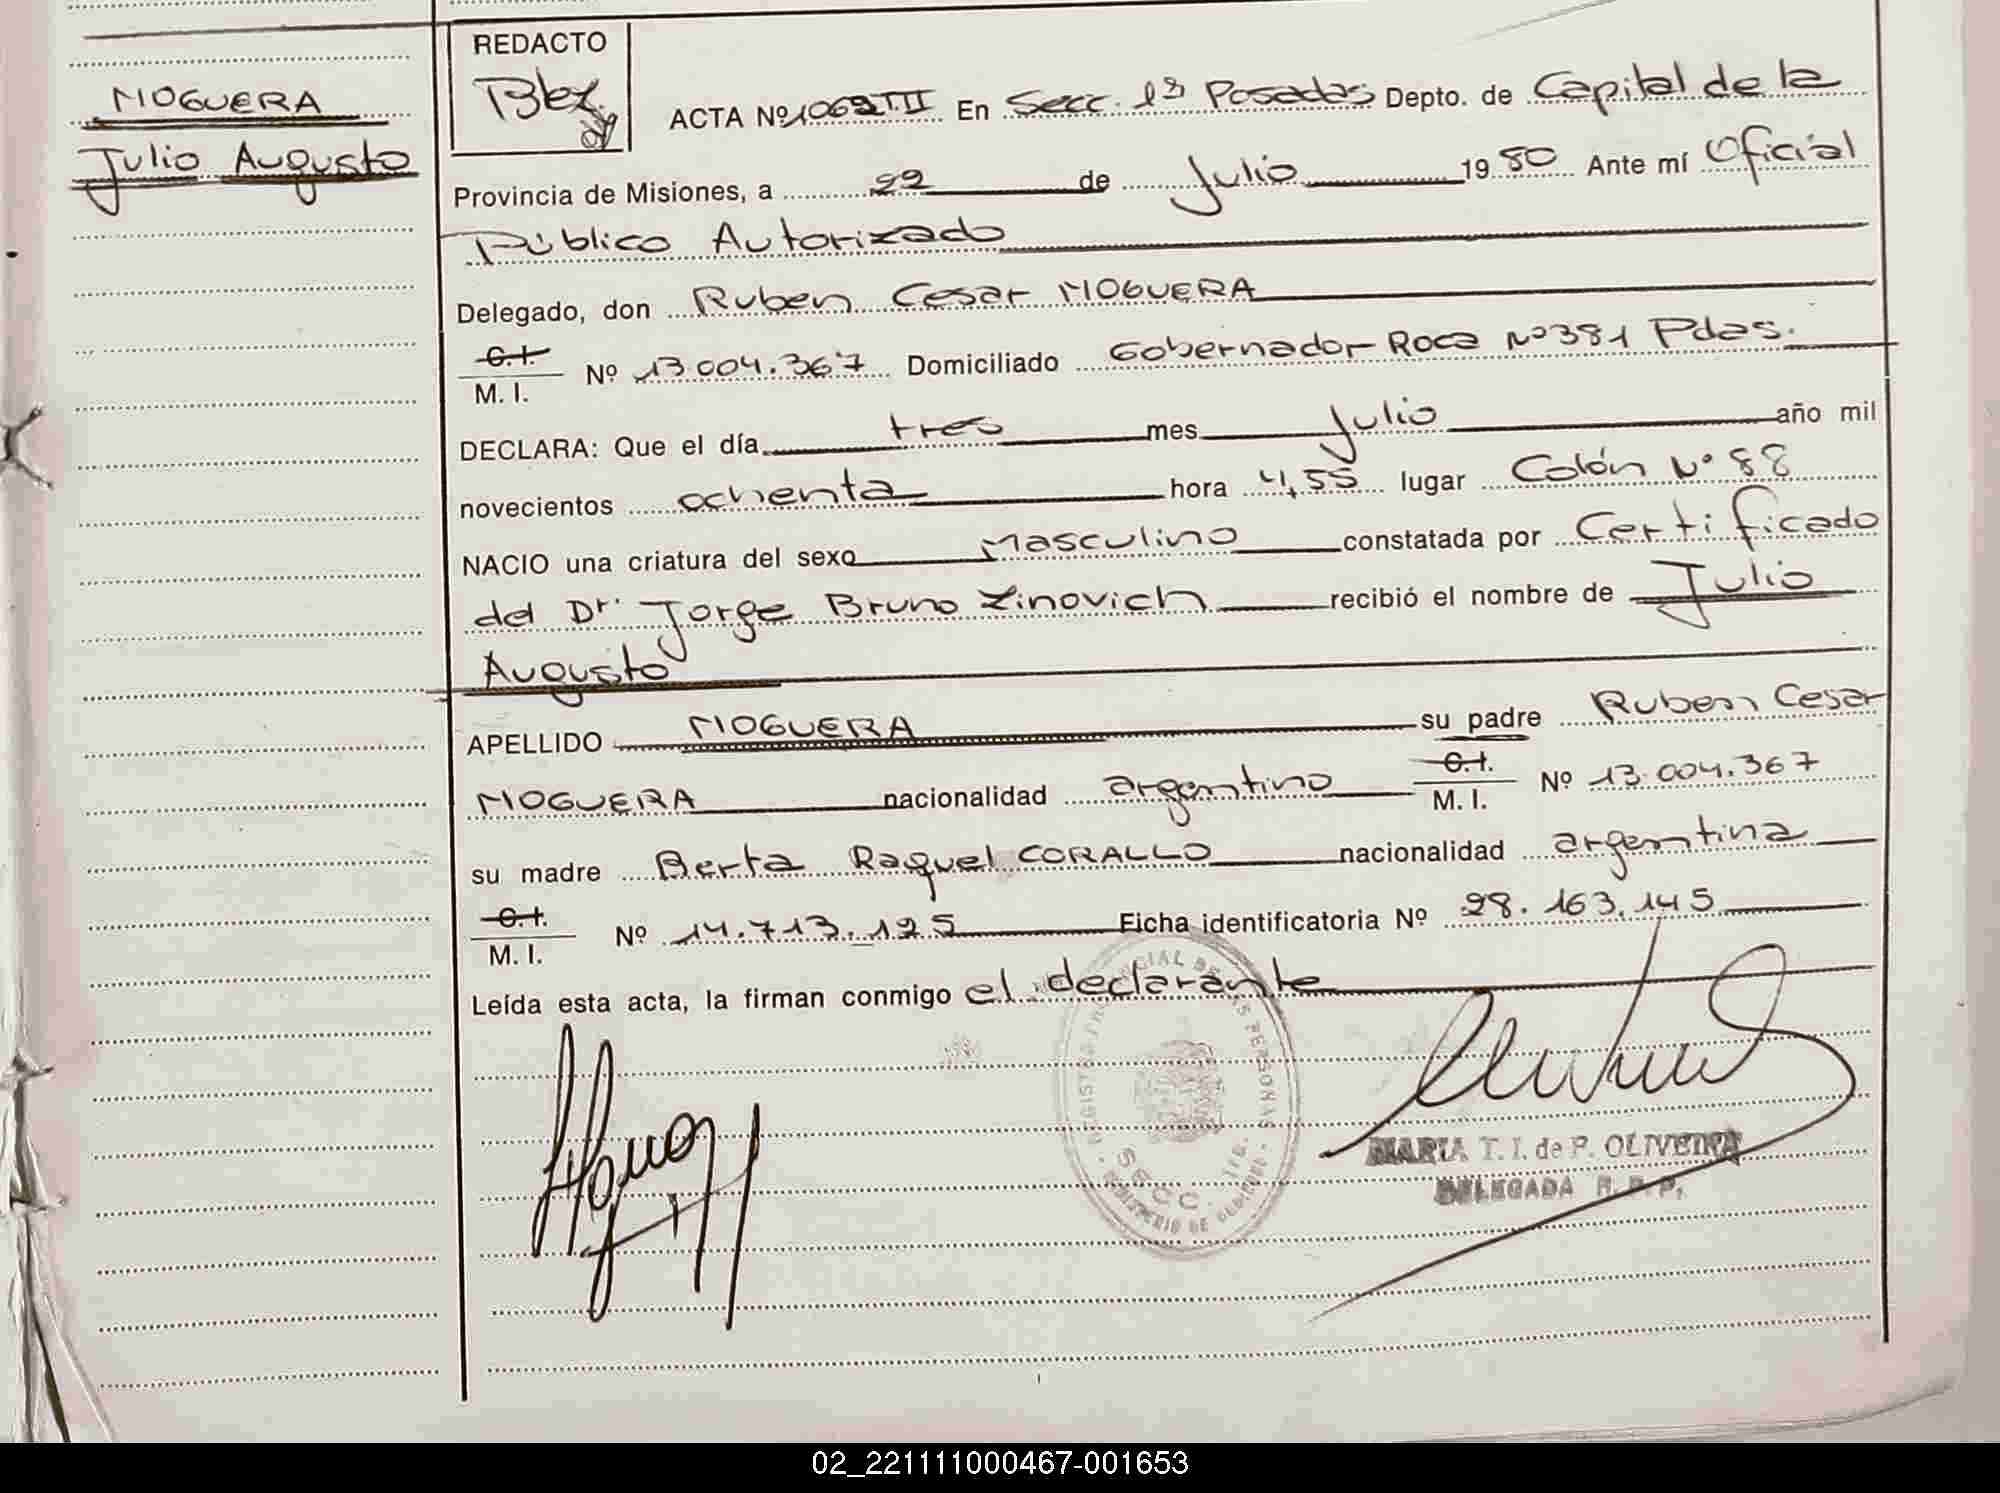 NOGUERA
Julio Augusto
REDACTO
ACTA Nº 1062 TII En Secc. 1ª Posadas Depto. de Capital de la
Provincia de Misiones, a 22 de Julio 1980 Ante mí Oficial
Público Autorizado
Delegado, don Ruben Cesar NOGUERA
C. I.
M. I.
Nº 13.004.367 Domiciliado Gobernador Roca Nº 381 Pdas.
DECLARA: Que el día tres mes Julio año mil
novecientos ochenta hora 4,55 lugar Colón Nº 88
NACIO una criatura del sexo Masculino constatada por Certificado
del Dr. Jorge Bruno Zinovich recibió el nombre de Julio
Augusto
APELLIDO NOGUERA su padre Ruben Cesar
NOGUERA nacionalidad argentino C. I. M. I. Nº 13.004.367
su madre Berta Raquel CORALLO nacionalidad argentina
C. I.
M. I.
Nº 14.713.125 Ficha identificatoria Nº 28.163.145
Leída esta acta, la firman conmigo el declarante
SECC. 1ra.
MARIA T. I. de P. OLIVEIRA
DELEGADA R. P. P.
02_221111000467-001653